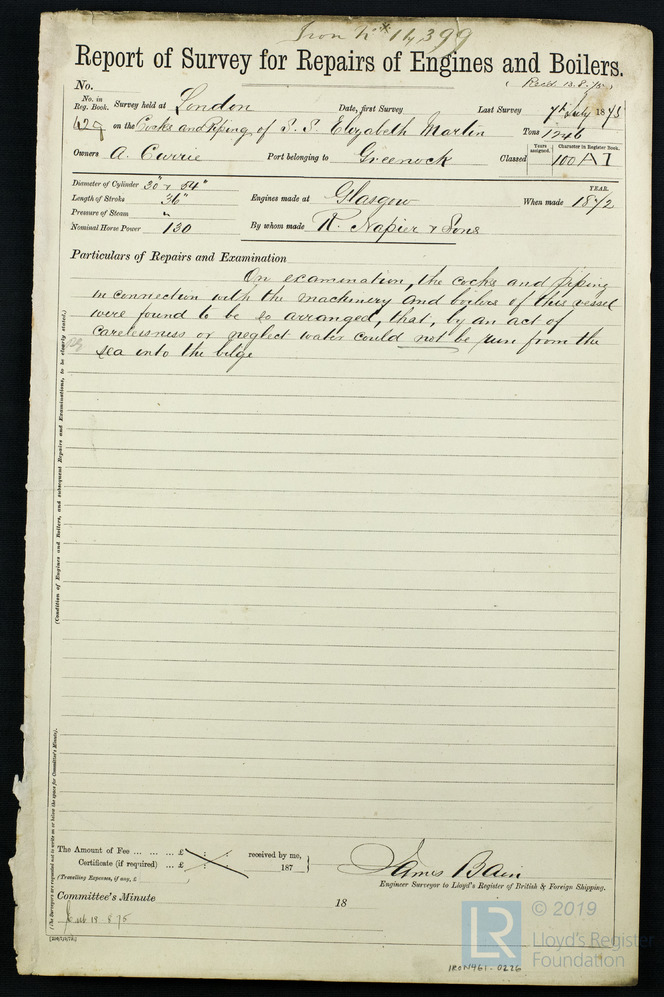 Iron Rpt 14399
Report of Survey for Repairs of Engines and Boilers.
No. (Recd 13.8.75)
No. in Reg. Book. Survey held at London Date, first Survey Last Survey 7th July 1875
629 on the Cocks and Piping of S. S. Elizabeth Martin Tons 1246
Owners A. Currie Port belonging to Greenock Classed Years assigned. 100 Character in Register Book. A1
Diameter of Cylinder 30" & 54"
Length of Stroke 36"
Pressure of Steam "
Nominal Horse Power 130
Engines made at Glasgow When made YEAR. 1872
By whom made R. Napier & Sons
Particulars of Repairs and Examination
On examination, the cocks and piping
in connection with the machinery and boilers of this vessel
were found to be so arranged, that, by an act of
carelessness or neglect water could not be run from the
sea into the bilge
(Condition of Engines and Boilers, and subsequent Repairs and Examinations, to be clearly stated.)
(The Surveyors are requested not to write on or below the space for Committee's Minute).
The Amount of Fee ... ... ... £ : : received by me,
Certificate (if required) ... £ : : 187
(Travelling Expenses, if any, £ )
James Bain
Engineer Surveyor to Lloyd's Register of British & Foreign Shipping.
Committee's Minute 18
13 8 75
© 2019
LR Lloyd's Register
Foundation
IRON461-0226